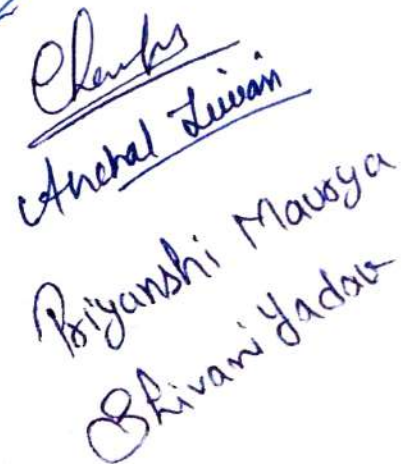 Anchal Tiwari
Priyanshi Maurya
Shivani Yadav